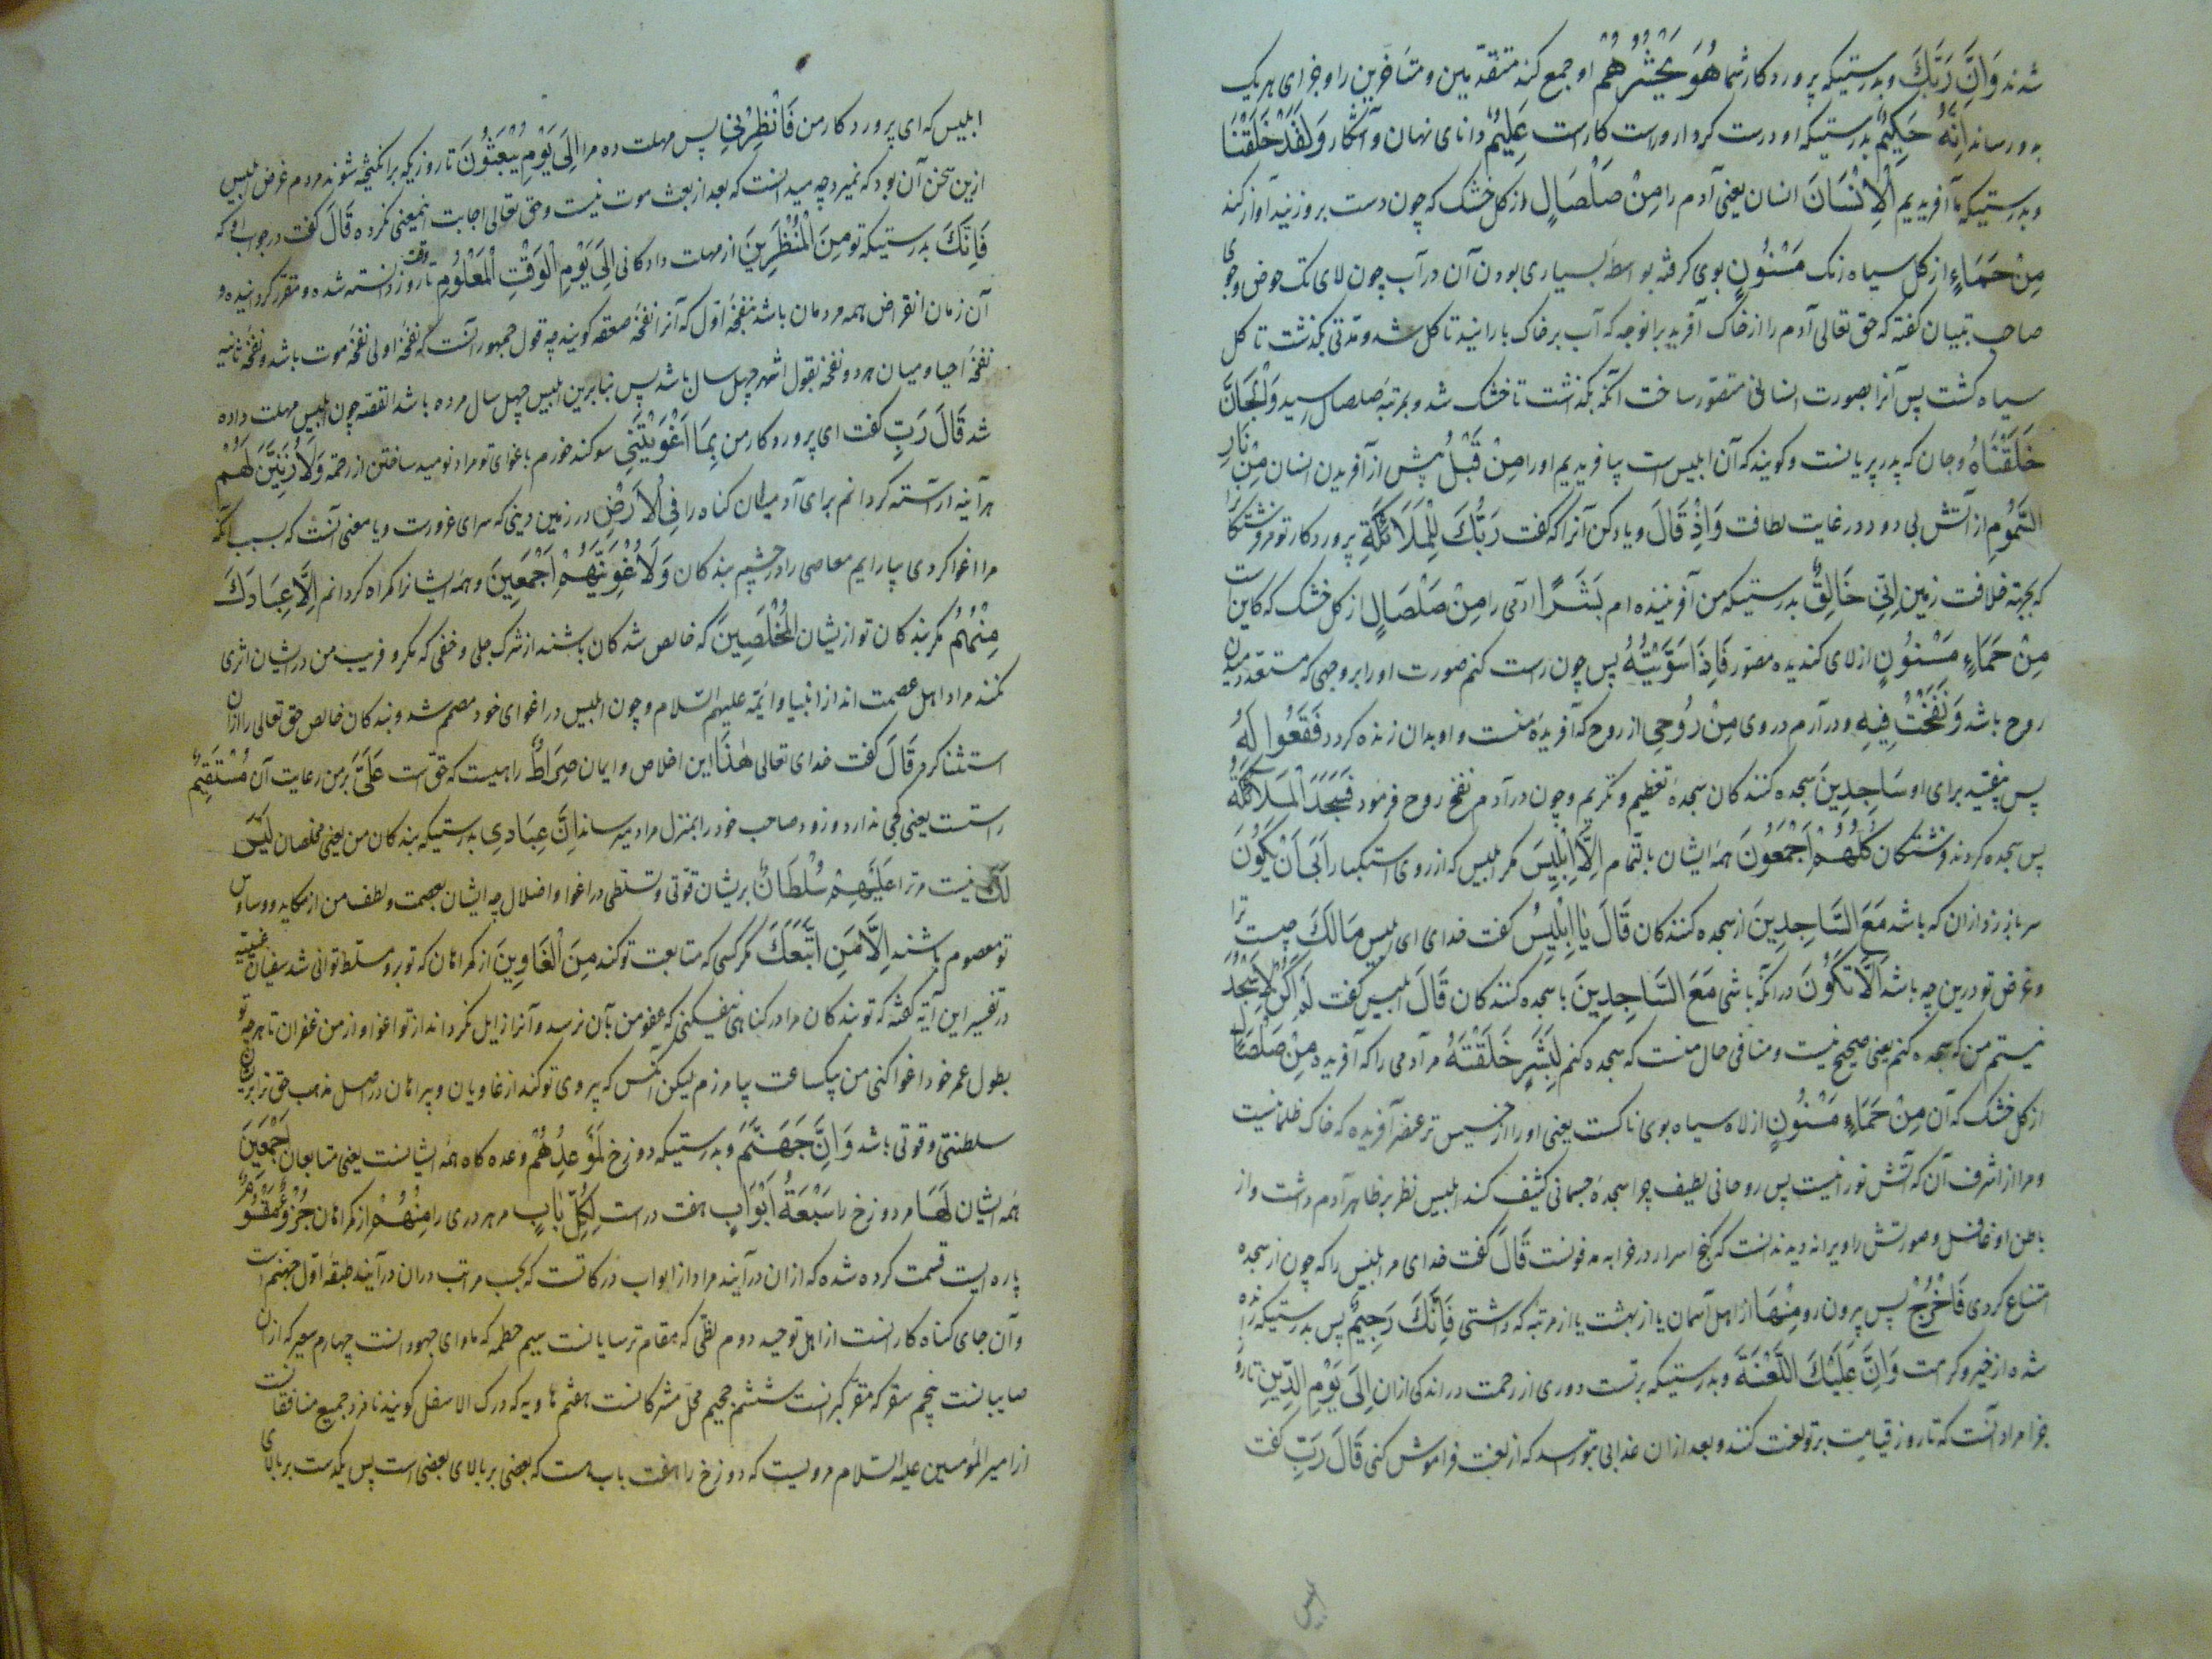 شدند وَاِنَّ رَبَّكَ وبدرستیکه پروردکار شما هُوَ يَحْشُرُهُمْ او جمع کند متقدمین ومتأخرین را وجزای هریک
بدو رساند اِنَّهُ حَكِيمٌ بدرستیکه او درست کردار وراست کارست عَلِيمٌ دانای نهان وآشکار وَلَقَدْ خَلَقْنَا
وبدرستیکه ما آفریدیم اَلْاِنْسَانَ انسان یعنی آدم را مِنْ صَلْصَالٍ از کل خشک که چون دست بروزنید آواز کند
مِنْ حَمَاءٍ از کل سیاه رنک مَسْنُونٍ بوی کرفته بواسطهٔ بسیاری بودن آن در آب چون لای تک حوض وجوی
صاحب تبیان کفته که حق تعالی آدم را از خاک آفرید برانوجه که آب برخاک بارانید تا کل شد ومدتی بکذشت تا کل
سیاه کشت پس آنرا بصورت انسانی متصور ساخت آنکه بکذشت تا خشک شد وبمرتبهٔ صلصال رسید وَالْجَانَّ
خَلَقْنَاهُ وجان که پدر پریانست وکویند که آن ابلیس است بیافریدیم اورا مِنْ قَبْلُ پیش از آفریدن انسان مِنْ نَارِ
السَّمُومِ از آتش بی دود در غایت لطافت وَاِذْ قَالَ ویاد کن آنرا که کفت رَبُّكَ لِلْمَلَائِكَةِ پروردکار تو مر فرشتکانرا
که بجهة خلافت زمین اِنِّي خَالِقٌ بدرستیکه من آفریننده ام بَشَرًا آدمی را مِنْ صَلْصَالٍ از کل خشک که کاین است
مِنْ حَمَاءٍ مَسْنُونٍ از لای کندیده مصور فَاِذَا سَوَّيْتُهُ پس چون راست کنم صورت اورا بر وجهی که مستعد دمیدن
روح باشد وَنَفَخْتُ فِيهِ ودر آرم در وی مِنْ رُوحِي از روح که آفریدهٔ منست واو بدان زنده کردد فَقَعُوا لَهُ
پس بیفتید برای او سَاجِدِينَ سجده کنندکان سجدهٔ تعظیم وتکریم وچون در آدم نفخ روح فرمود فَسَجَدَ الْمَلَائِكَةُ
پس سجده کردند فرشتکان كُلُّهُمْ اَجْمَعُونَ همهٔ ایشان بالتمام اِلَّا اِبْلِيسَ مکر ابلیس که از روی استکبار اَبَى اَنْ يَكُونَ
سر باز زد ازان که باشد مَعَ السَّاجِدِينَ از سجده کنندکان قَالَ يَا اِبْلِيسُ کفت خدای ای ابلیس مَالَكَ چیست ترا
وغرض تو درین چه باشد اَلَّا تَكُونَ در آنکه باشی مَعَ السَّاجِدِينَ با سجده کنندکان قَالَ ابلیس کفت لَمْ اَكُنْ لِاَسْجُدَ
نیستم من که سجده کنم یعنی صحیح نیست ومنافی حال منست که سجده کنم لِبَشَرٍ خَلَقْتَهُ مر آدمی را که آفریدهٔ مِنْ صَلْصَالٍ
از کل خشک که آن مِنْ حَمَاءٍ مَسْنُونٍ از لاء سیاه بوی ناکست یعنی اورا از خسیس تر عنصر آفریدهٔ که خاک ظلمانیست
ومرا از اشرف آن که آتش نورانیست پس روحانی لطیف چرا سجدهٔ جسمانی کثیف کند ابلیس نظر بر ظاهر آدم داشت واز
باطن او غافل وصورتش را ویرانه دید ندانست که کنج اسرار در خرابه مدفونست قَالَ کفت خدای مر ابلیس را که چون از سجده
امتناع کردی فَاخْرُجْ پس بیرون رو مِنْهَا از اهل آسمان یا از بهشت یا از مرتبه که داشتی فَاِنَّكَ رَجِيمٌ پس بدرستیکه رانده
شدهٔ از خیر وکرامت وَاِنَّ عَلَيْكَ اللَّعْنَةَ وبدرستیکه برتست دوری از رحمت در اندکی ازان اِلَى يَوْمِ الدِّينِ تا روز
جزا مراد آنست که تا روز قیامت برتو لعنت کنند وبعد ازان عذابی بتو رسد که از لعنت فراموش کنی قَالَ رَبِّ کفت
ابلیس که ای پروردکار من فَاَنْظِرْنِي پس مهلت ده مرا اِلَى يَوْمِ يُبْعَثُونَ تا روزیکه برانکیخته شوند مردم غرض ابلیس
ازین سخن آن بود که نمیرد چه میدانست که بعد از بعث موت نیست وحق تعالی اجابت اینمعنی نکرده قَالَ کفت در جواب او که
فَاِنَّكَ بدرستیکه تو مِنَ الْمُنْظَرِينَ از مهلت دادکانی اِلَى يَوْمِ الْوَقْتِ الْمَعْلُومِ تا روز وقت دانسته شده ومقرر کردانیده و
آن زمان انقراض همه مردمان باشد بنفخهٔ اول که آنرا نفخهٔ صعقه کویند چه قول جمهور آنست که نفخهٔ اولی نفخهٔ موت باشد ونفخهٔ ثانیه
نفخهٔ احیا ومیان هر دو نفخه بقول اشهر چهل سال باشد پس بنابرین ابلیس چهل سال مرده باشد القصه چون ابلیس مهلت داده
شد قَالَ رَبِّ کفت ای پروردکار من بِمَا اَغْوَيْتَنِي سوکند خورم باغوای تو مرا ونومید ساختن از رحمة وَلَاُزَيِّنَنَّ لَهُمْ
هر آینه آراسته کردانم برای آدمیان کناه را فِي الْاَرْضِ در زمین دینی که سرای غرورست ویا معنی آنست که بسبب آنکه
مرا اغوا کردی بیارایم معاصی را در چشم بندکان وَلَاُغْوِيَنَّهُمْ اَجْمَعِينَ وهمهٔ ایشانرا کمراه کردانم اِلَّا عِبَادَكَ
مِنْهُمُ مکر بندکان تو از ایشان الْمُخْلَصِينَ که خالص شدکان باشند از شرک جلی وخفی که مکر وفریب من در ایشان اثری
نکند مراد اهل عصمت اند از انبیا وائمه علیهم السلام وچون ابلیس در اغوای خود مصمم شد وبندکان خالص حق تعالی را ازان
استثنا کرد قَالَ کفت خدای تعالی هٰذَا این اخلاص وایمان صِرَاطٌ راهیست که حق است عَلَيَّ بر من رعایت آن مُسْتَقِيمٌ
راست یعنی کجی ندارد وزود صاحب خود را بمنزل مراد میرساند اِنَّ عِبَادِي بدرستیکه بندکان من یعنی مخلصان لَيْسَ
لَكَ نیست مر ترا عَلَيْهِمْ سُلْطَانٌ بر ایشان قوتی وتسلطی در اغوا واضلال چه ایشان بعصمت ولطف من از مکاید ووساوس
تو معصوم باشند اِلَّا مَنِ اتَّبَعَكَ مکر کسی که متابعت تو کند مِنَ الْغَاوِينَ از کمراهان که تو برو مسلط توانی شد سفیان عیینه
در تفسیر این آیه کفته که تو بندکان مرا در کناهی نیفکنی که عفو من بآن نرسد وآنرا زایل نکرداند از تو اغوا واز من غفران تا هرچه تو
بطول عمر خود اغوا کنی من بیکساعت بیامرزم لیکن آنکس که پیروی تو کند از غاویان وبیراهان در اصل مذهب حق ترا برایشان
سلطنتی وقوتی باشد وَاِنَّ جَهَنَّمَ وبدرستیکه دوزخ لَمَوْعِدُهُمْ وعده کاه همهٔ ایشانست یعنی متابعان اَجْمَعِينَ
همهٔ ایشان لَهَا مر دوزخ را سَبْعَةُ اَبْوَابٍ هفت درست لِكُلِّ بَابٍ مر هر دری را مِنْهُمْ از کمراهان جُزْءٌ مَقْسُومٌ
پاره ایست قسمت کرده شده که ازان در آیند مراد از ابواب درکاتست که بحسب مراتب دران در آیند طبقهٔ اول جهنم است
وآن جای کناه کارانست از اهل توحید دوم لظی که مقام ترسایانست سیم حطمه که ماوای جهودانست چهارم سعیر که ازان
صابیانست پنجم سقر که مقر کبرانست ششم جحیم محل مشرکانست هفتم هاویه که درک الاسفل کویند نامزد جمیع منافقانست
از امیر المؤمنین علیه السلام مرویست که دوزخ را هفت باب است که بعضی بر بالای بعضی است پس یکدست بر بالای